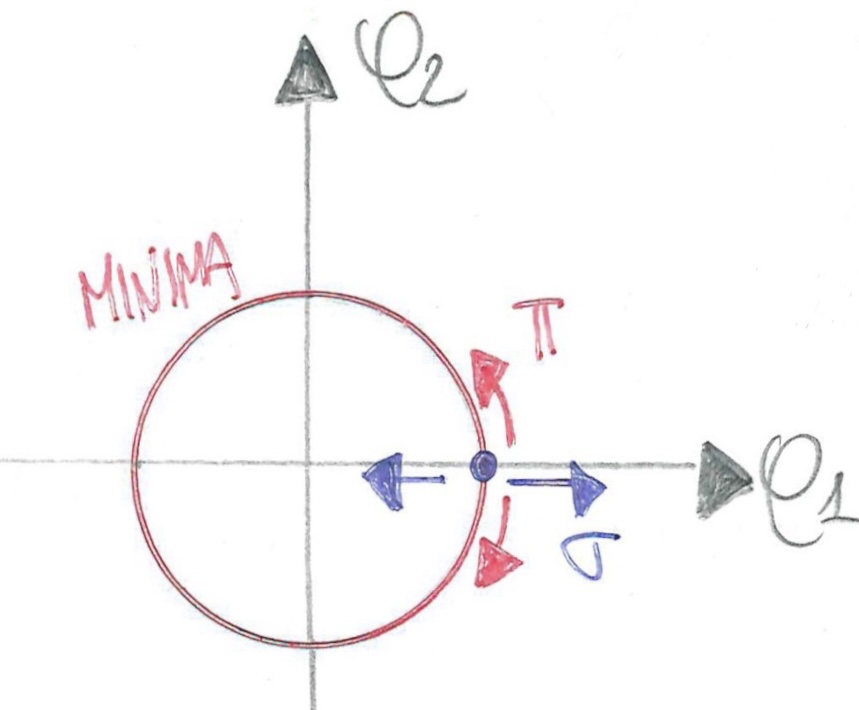 φ2
MINIMA
π
φ1
σ